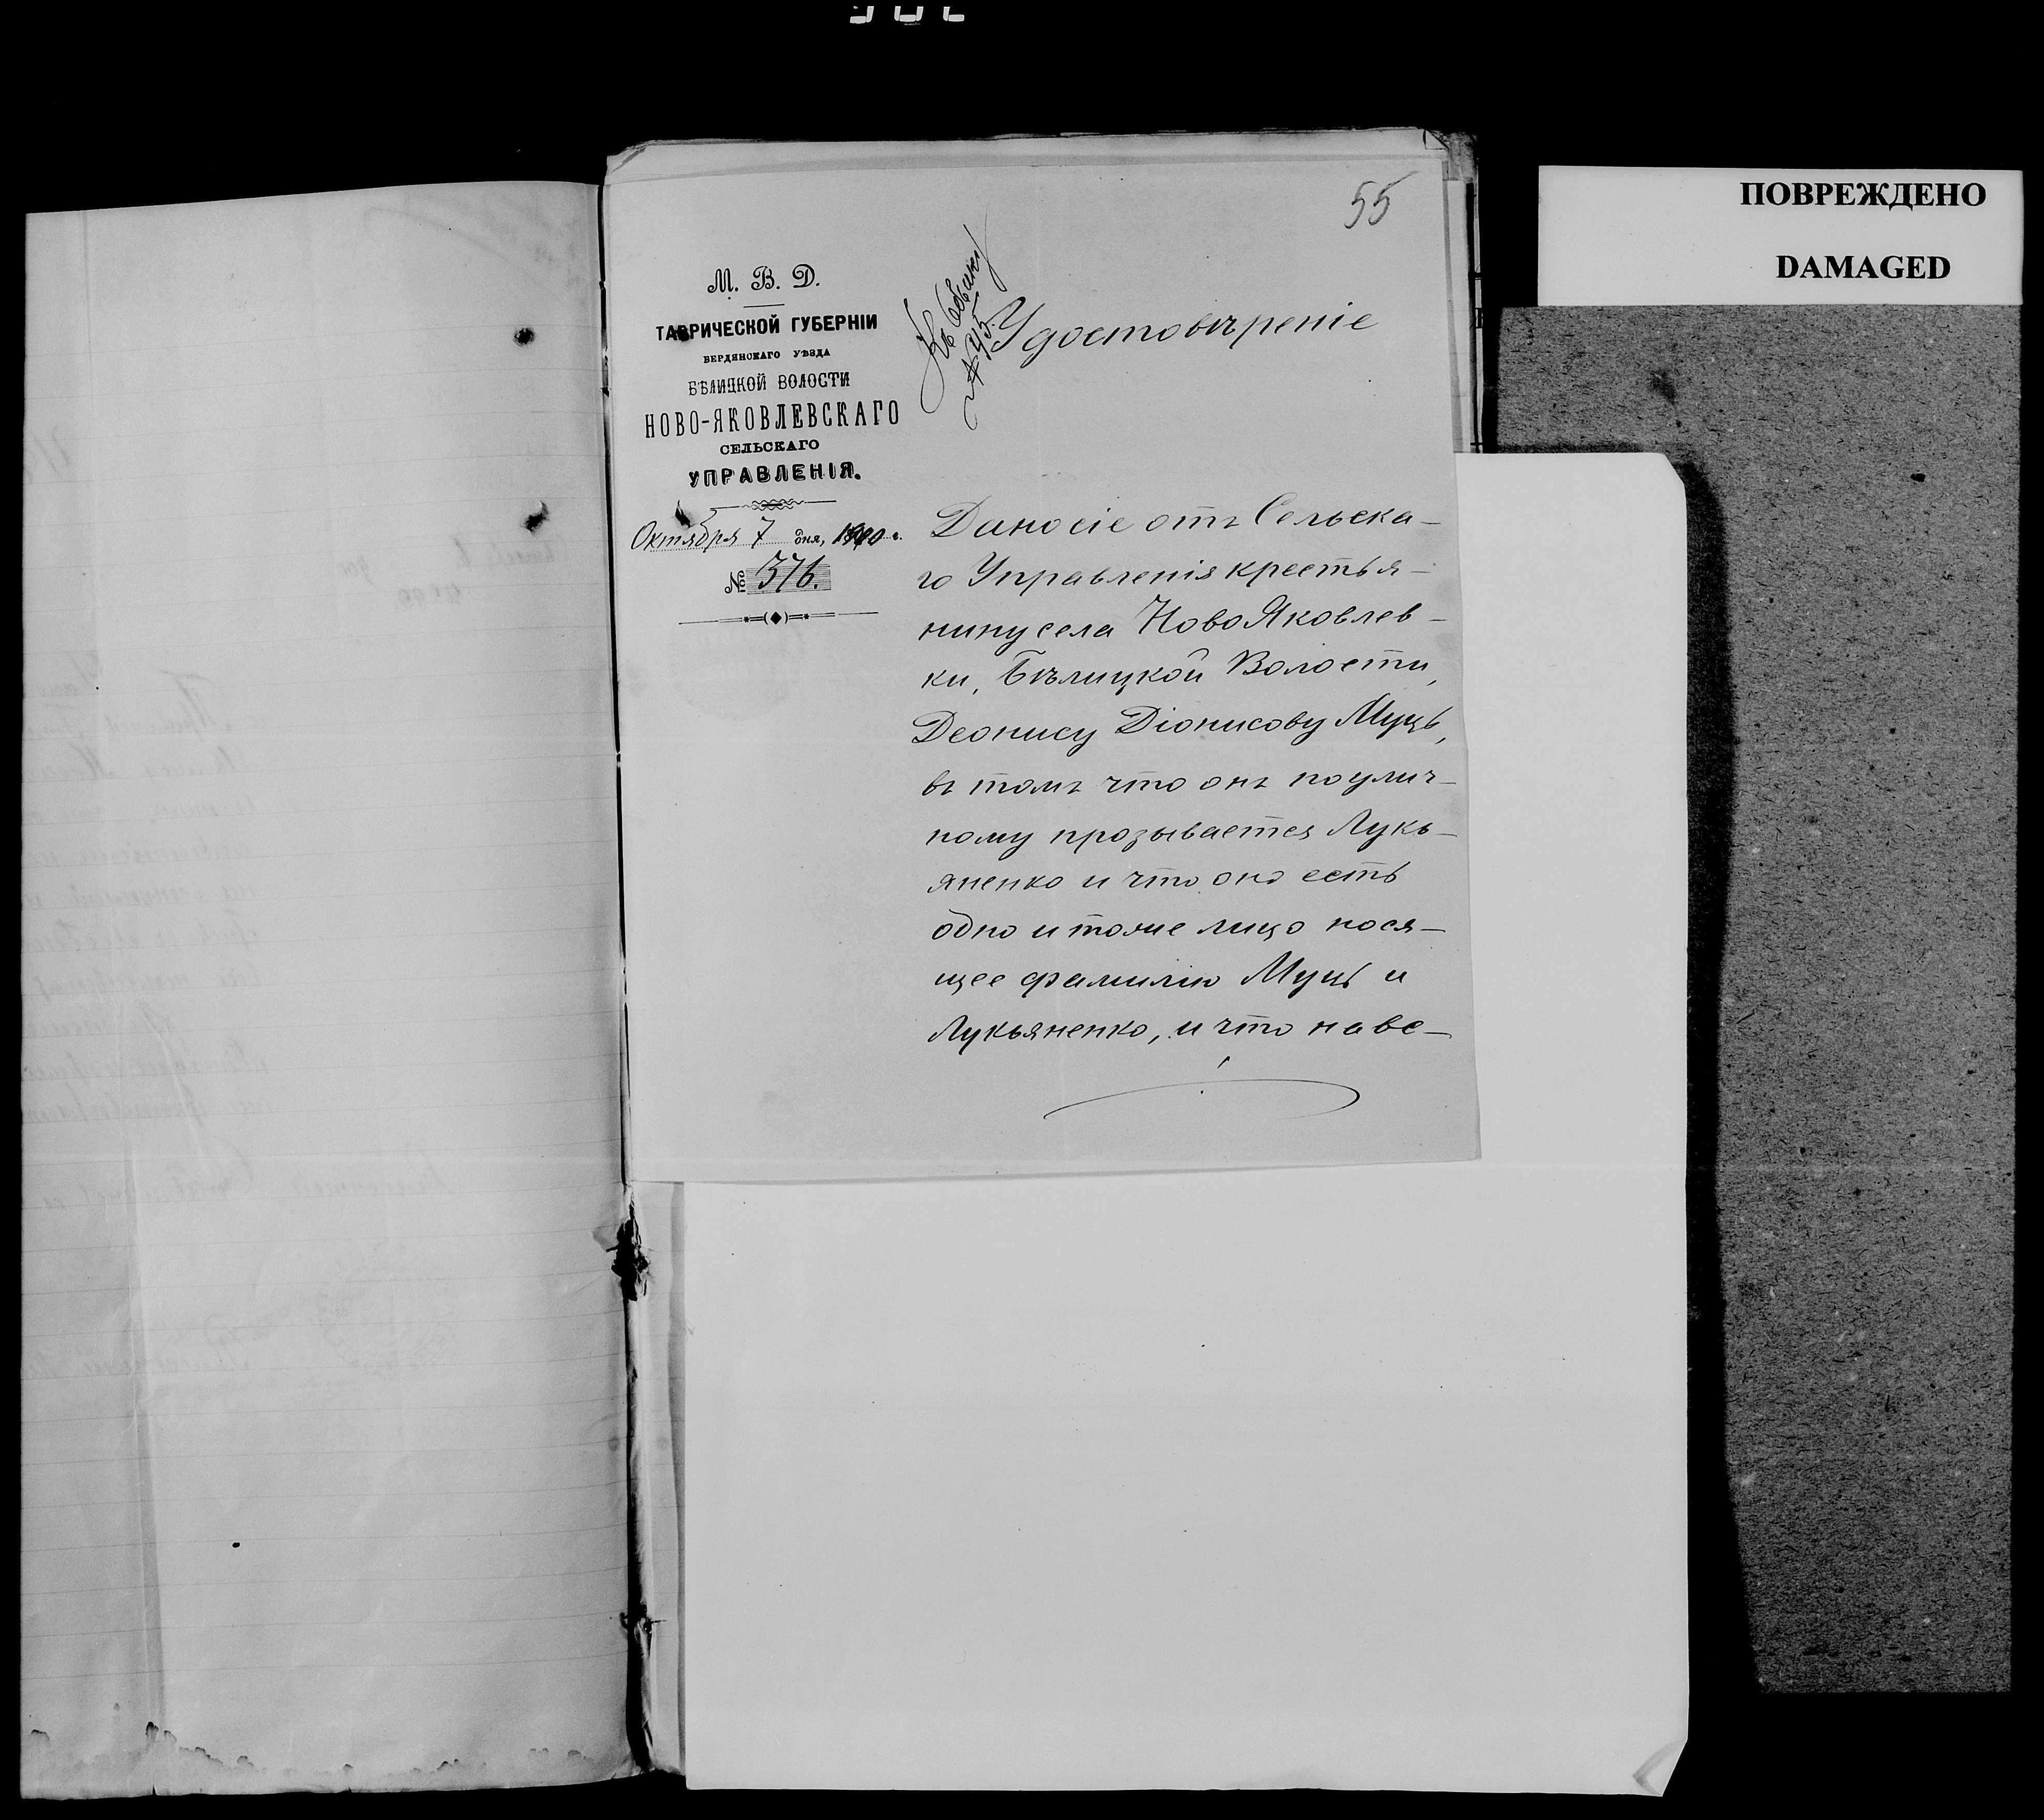 55
М. В. Д.
ТАВРИЧЕСКОЙ ГУБЕРНІИ
БЕРДЯНСКАГО УѢЗДА
БѢЛИЦКОЙ ВОЛОСТИ
НОВО-ЯКОВЛЕВСКАГО
СЕЛЬСКАГО
УПРАВЛЕНІЯ.
Октября 7 дня, 1900 г.
№ 376.
Удостовѣреніе
Дано сіе отъ Сельска-
го Управленія крестья-
нину села НовоЯковлев-
ки, Бѣлицкой Волости,
Деонису Діонисову Муць,
въ томъ что онъ по улич-
ному прозывается Лукь-
яненко и что онъ есть
одно и тоже лицо нося-
щее фамилію Муць и
Лукьяненко, и что на ве-
ПОВРЕЖДЕНО
DAMAGED